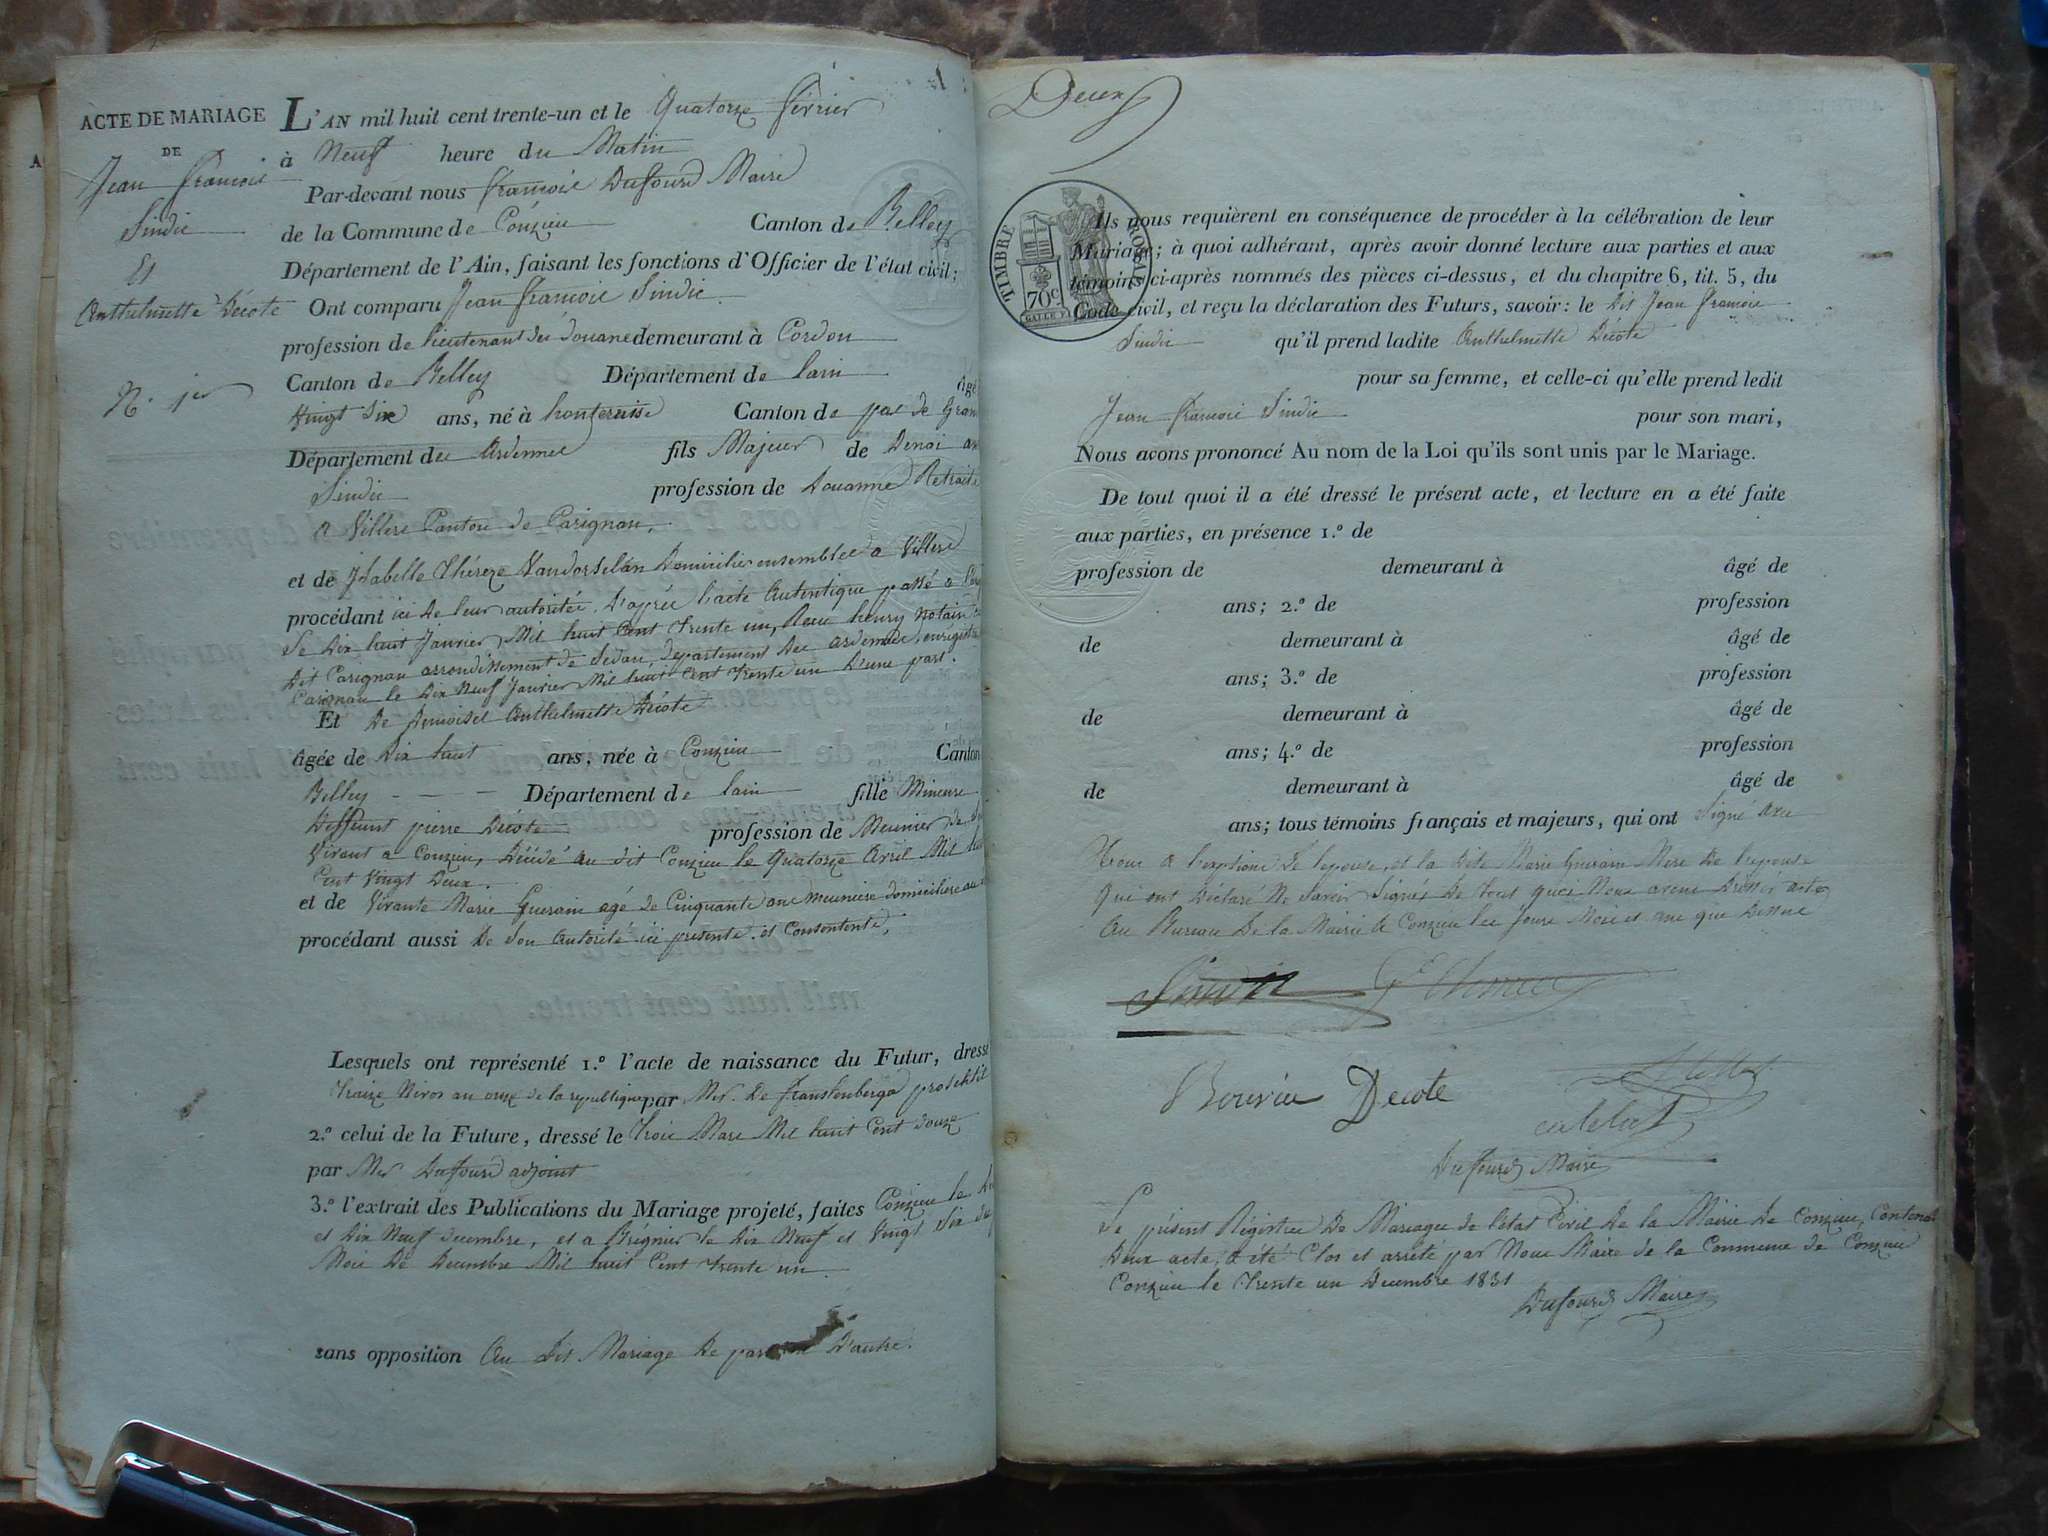 ACTE DE MARIAGE
DE
Jean françois
Sindic
Et
Anthelmette Décote
N. 1er
L'AN mil huit cent trente-un et le Quatorze février
à Neuf heure du Matin
Par-devant nous françois Dufourd Maire
de la Commune de Conzieu Canton de Belley
Département de l'Ain, faisant les fonctions d'Officier de l'état civil;
Ont comparu Jean françois Sindic
profession de lieutenant des douane demeurant à Cordon
Canton de Belley Département de lain âgé
Vingt Six ans, né à Canton de pas de
Département des Ardennes fils Majeur de
Sindic profession de Douanne Retraité
a Villers Canton de Carignan,
et de Isabelle Thérèze Vandorselan Domicilies ensembles a Villers
procédant ici de leur autorités, d'après l'acte Autentique passé a
Le Dix huit Janvier Mil huit Cent Trente un, henry notaire
dit Carignan arrondissement de Sedan, département des ardennes, enregistré
Carignan le Dix Neuf Janvier Mil huit Cent Trente un D'une part.
Et De Anthelmette Décote
âgée de Dix huit ans, née à Conzieu Canton
Belley Département de lain fille Mineure
Deffeunt pierre Décote profession de Meunier de
Vivant a Conzieu, Décédé au dit Conzieu le Quatorze Avril Mil
Cent Vingt Deux.
et de Vivante Marie Guerain agé de Cinquante ans meunière domiciliere au
procédant aussi De Son Autorité ici présente et Consentente,
Lesquels ont représenté 1.º l'acte de naissance du Futur, dressé
Traize Nivos an onze de la republique par Mr. De
2.º celui de la Future, dressé le Trois Mars Mil huit Cent Douze
par Mr Dufourd adjoint
3.º l'extrait des Publications du Mariage projeté, faites Conzieu le
et Dix Neuf decembre, et a Brégnier le Dix Neuf et Vingt Six du
Mois De Decembre Mil huit Cent Trente un
sans opposition Au Dit Mariage De part D'autre.
Deux
TIMBRE ROYAL
70c
Ils nous requièrent en conséquence de procéder à la célébration de leur
Mariage; à quoi adhérant, après avoir donné lecture aux parties et aux
témoins ci-après nommés des pièces ci-dessus, et du chapitre 6, tit. 5, du
Code civil, et reçu la déclaration des Futurs, savoir: le dit Jean françois
Sindic qu'il prend ladite Anthelmette Décote
pour sa femme, et celle-ci qu'elle prend ledit
Jean françois Sindic pour son mari,
Nous avons prononcé Au nom de la Loi qu'ils sont unis par le Mariage.
De tout quoi il a été dressé le présent acte, et lecture en a été faite
aux parties, en présence 1.º de
profession de demeurant à âgé de
ans; 2.º de profession
de demeurant à âgé de
ans; 3.º de profession
de demeurant à âgé de
ans; 4.º de profession
de demeurant à âgé de
ans; tous témoins français et majeurs, qui ont Signé avec
Nous a l'exption de lepouse, et la dite Marie Guerain Mere De l'epouse
Qui ont Déclaré Ne Savoir Signés De Tout quoi Nous avons Dressér acte
Au Bureau De la Mairie de Conzieu les Jours Mois et ans que Dessus
Sindic
Bouvier Decote
Dufourd Maire
Le présent Registre De Mariages de l'état Civil De la Mairie De Conzieu, Contenat
Deux acte, a été Clos et arrété par Nous Maire de la Commune de Conzieu
Conzieu le Trente un Decembre 1831
Dufourd Maire